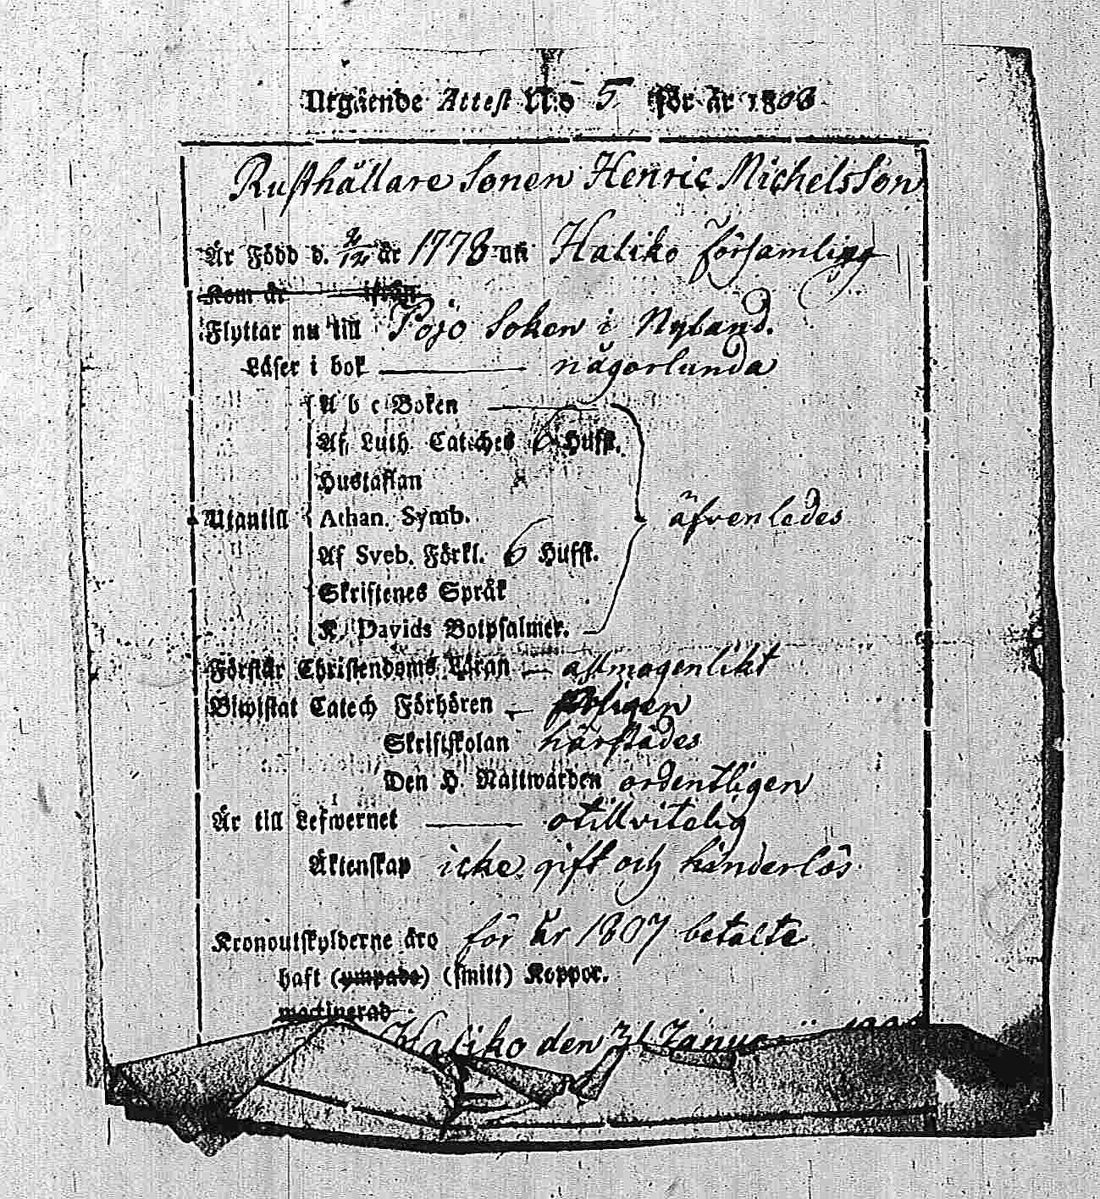 Utgående Attest N:o 5 för år 1808
Rusthållare Sonen Henric Michelsson
Är Född d. 2/12 år 1778 uti Haliko församling
Kom år ifrån
Flyttar nu till Pojo Soken i Nyland.
Läser i bok någorlunda
A b c Boken
Af Luth. Catches 6 Hufst.
Hustaflan
Utantill Athan. Symb. äfvenledes
Af Sveb. Förkl. 6 Hufst.
Skriftenes Språk
K. Davids Botpsalmer.
Förstår Christendoms Läran
Biwistat Catech Förhören
Skriftskolan härstädes
Den H. Nattwarden ordentligen
Är till Lefwernet otillvitelig
Äktenskap icke gift och hinderlös
Kronoutskylderne äro för år 1807 betalte
haft (ympade) (smitt) Koppor.
waccinerad
Haliko den 31 Janua